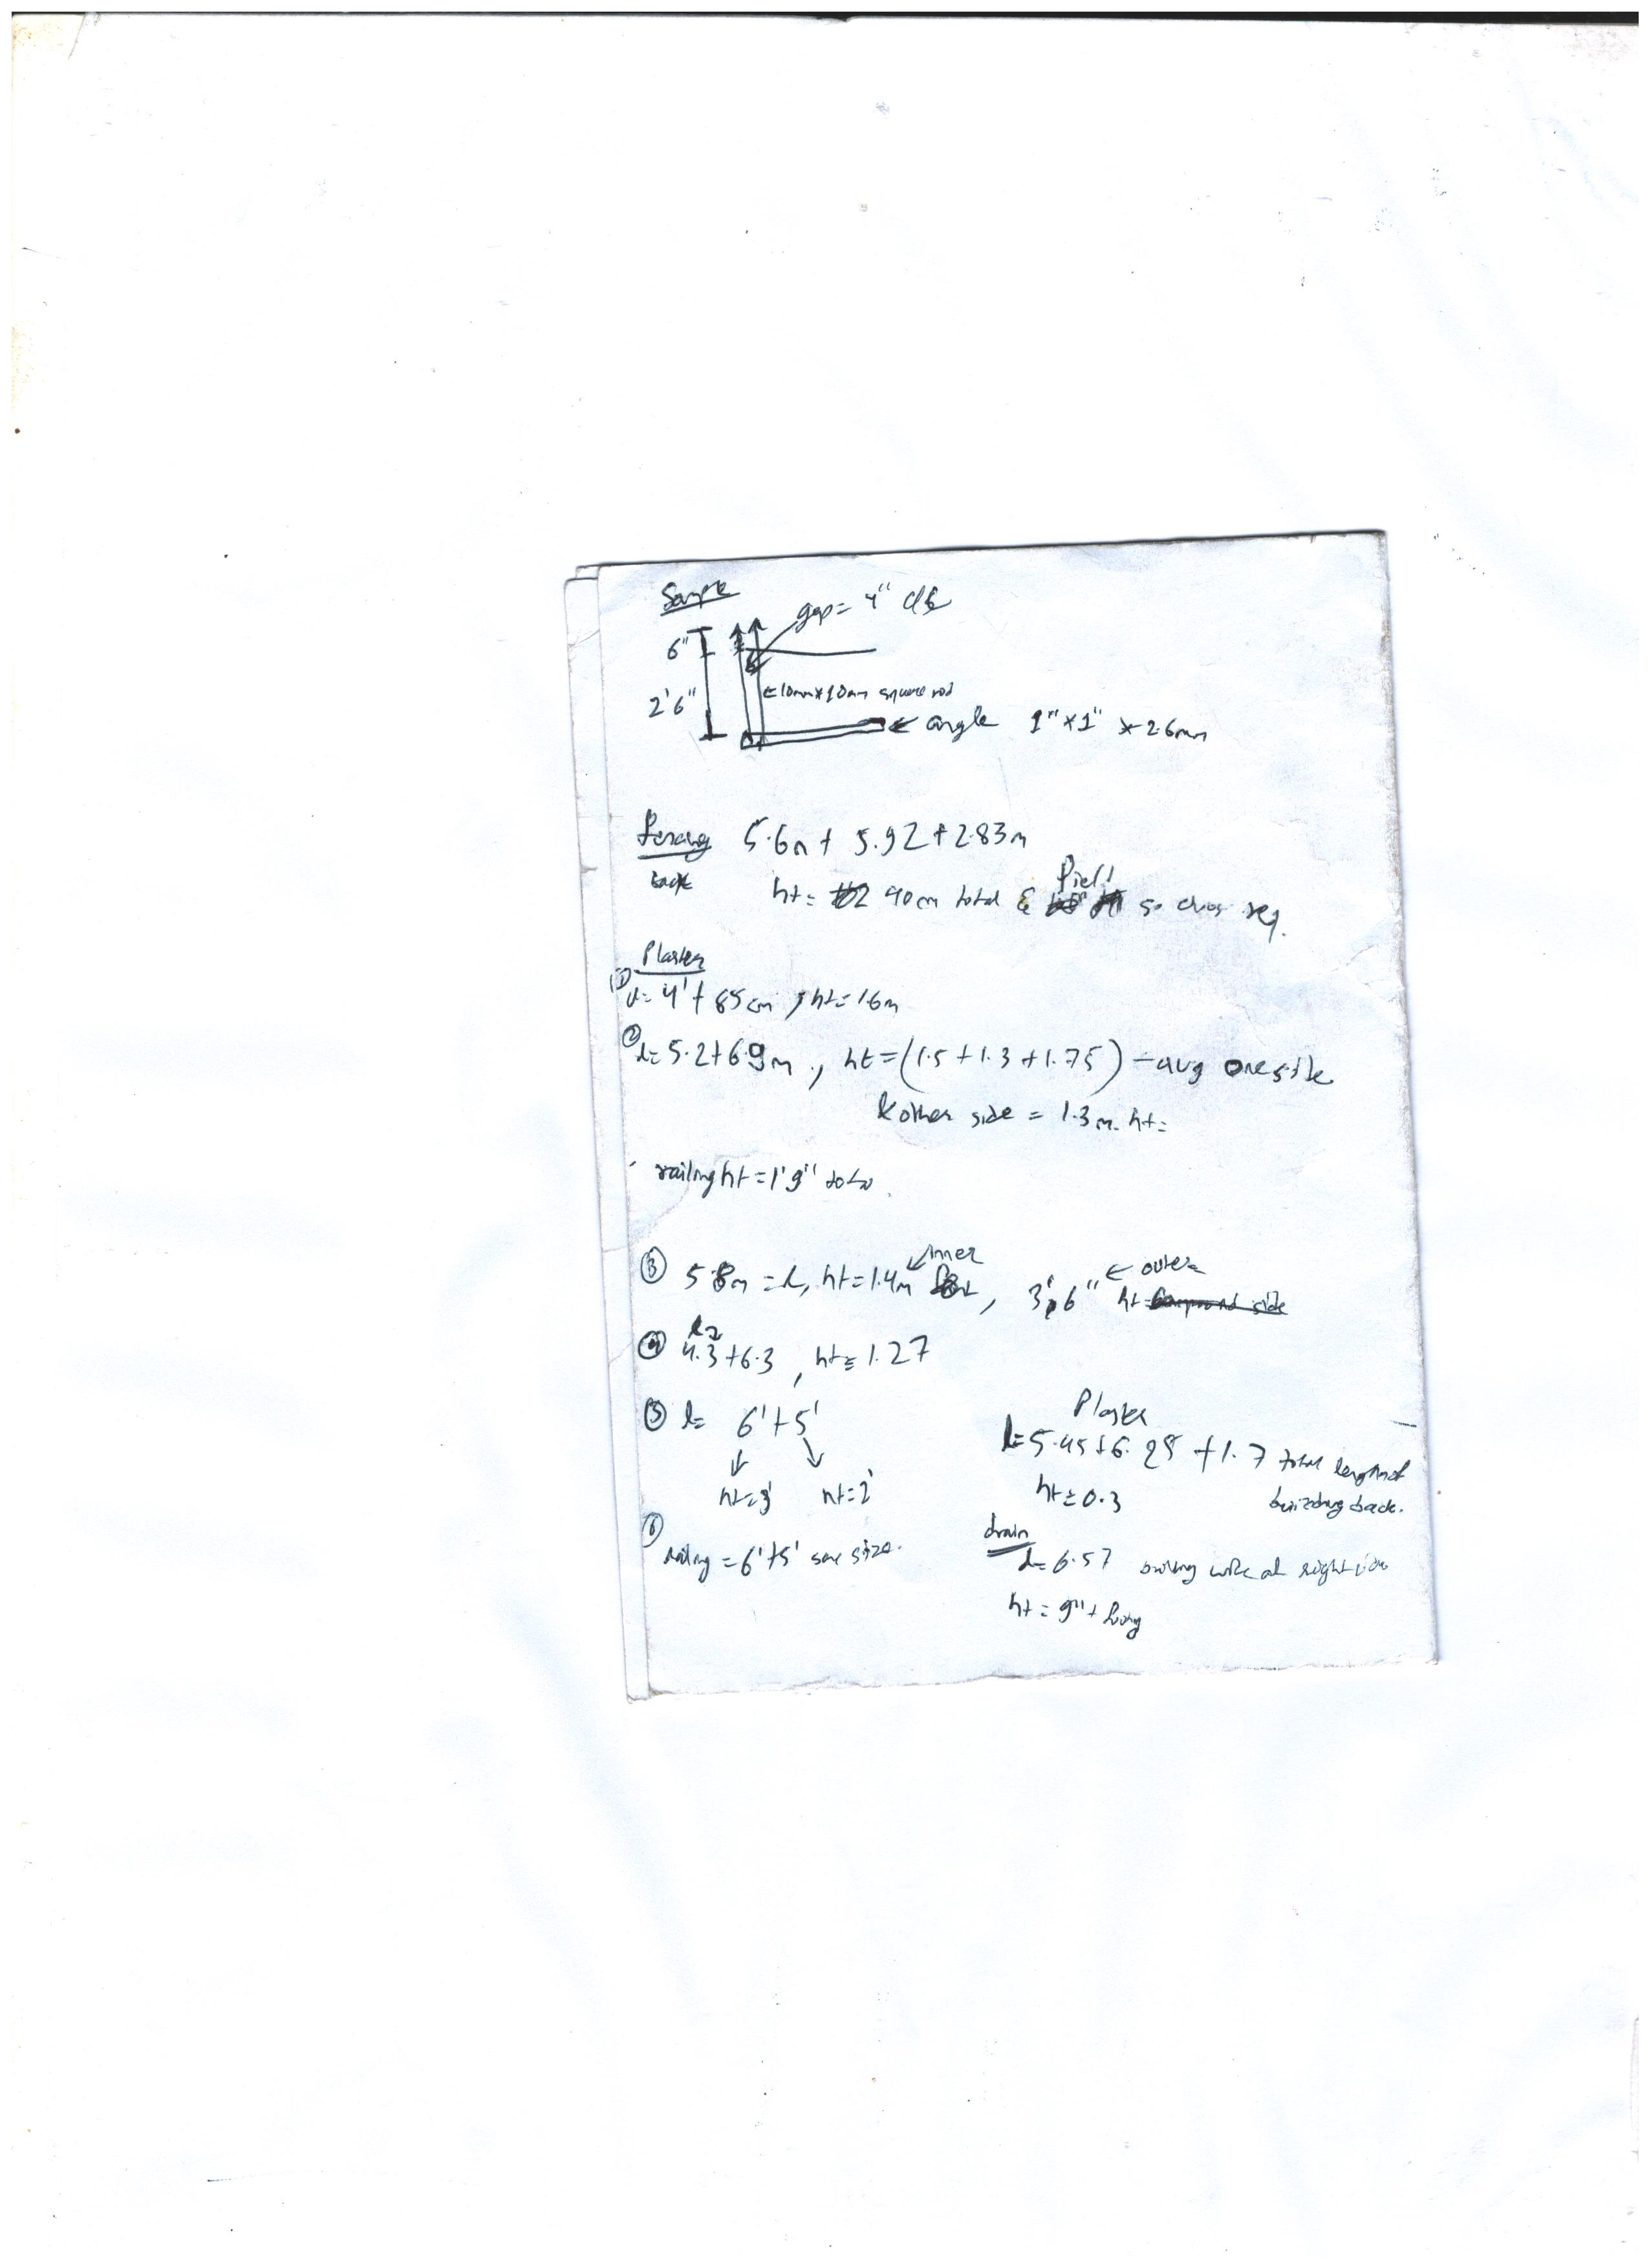 Sample
gap = 4" c/c
6"
2'6"
←10mm×10mm square rod
← angle 1"×1" × 2.6mm
Fencing 5.6m + 5.92 + 2.83m
back
ht = 90cm total &
so req.
Plaster
① l= 4' + 85cm, ht=1.6m
② l= 5.2+6.9m, ht=(1.5+1.3+1.75) - avg one side
& other side = 1.3m. ht=
railing ht = 1'9"
③ 5.8m = l, ht=1.4m ← inner, 3'6" ← outer ht
④ l= 4.3+6.3, ht= 1.27
⑤ l= 6'+5'
ht=3' ht=2'
⑥ railing = 6'+5' same size.
Plaster
l= 5.45+6.25 +1.7 total length of
building back.
ht= 0.3
drain
l= 6.57 at right side
ht = 9" +